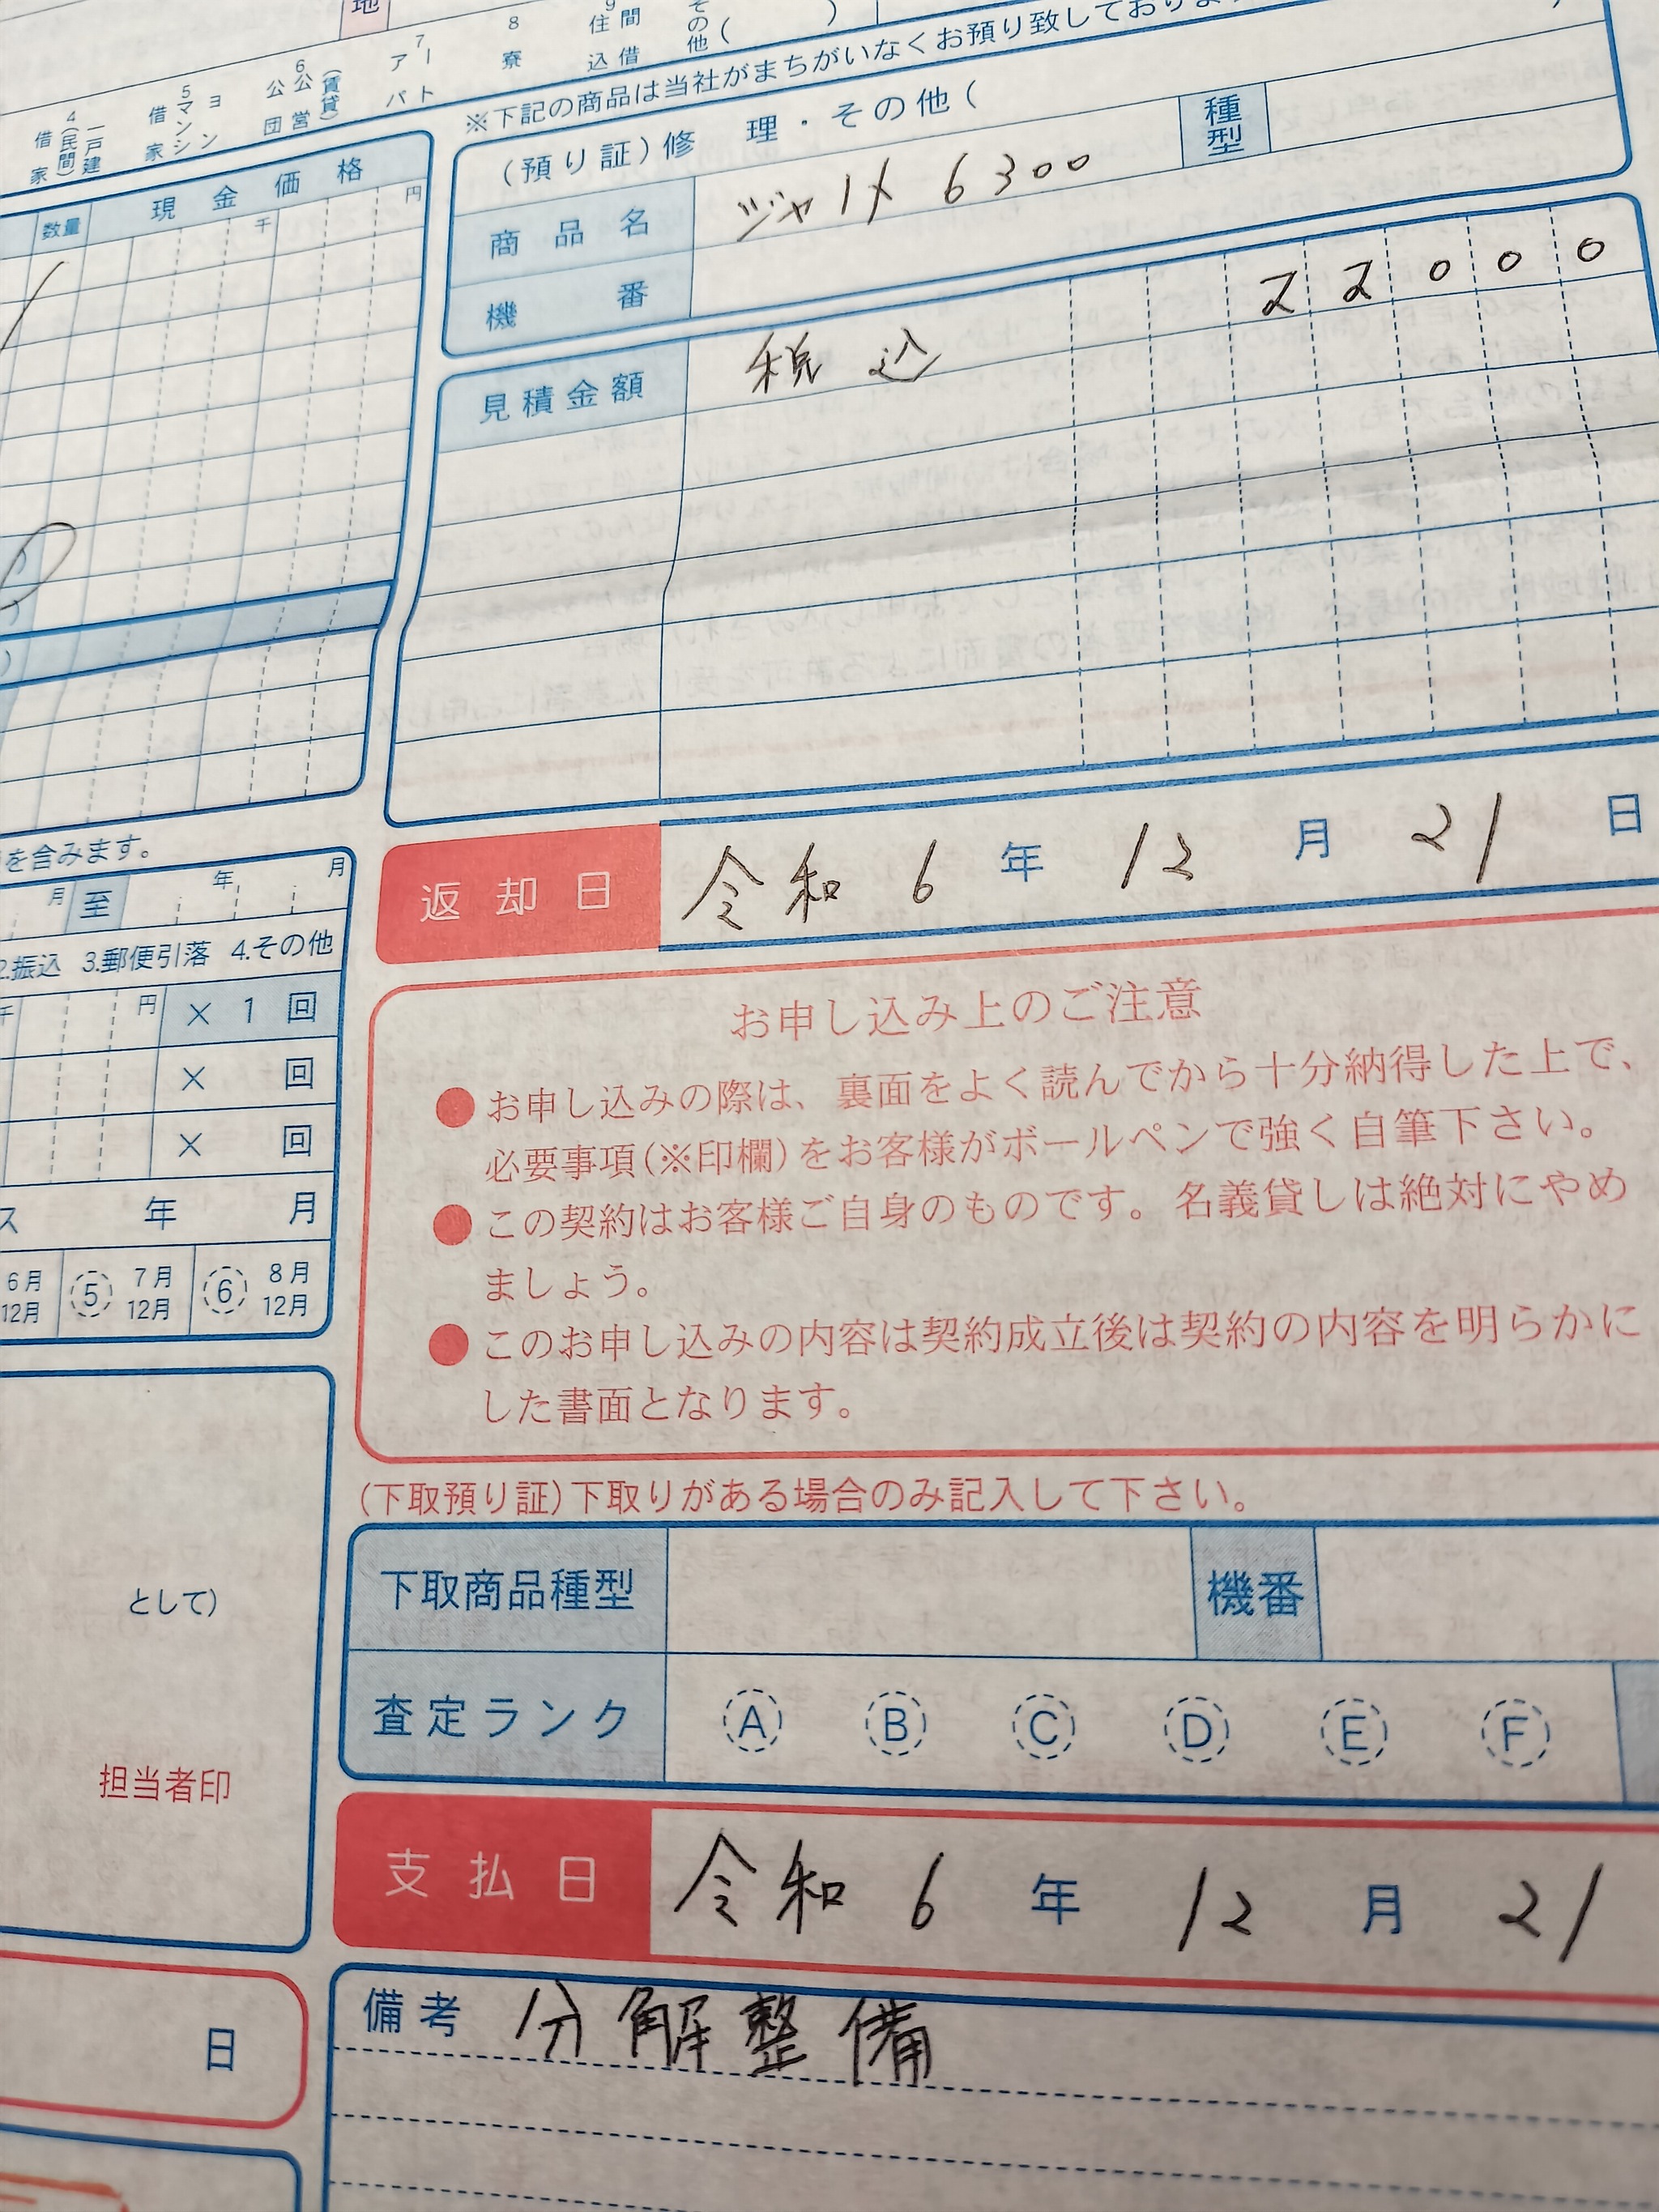 地
4 一戸建(民間)借家
5 マンション借家
6 公営(賃貸)公団
7 アパート
8 寮
9 間借住込
その他( )
数量 現金価格
千 円
を含みます。
月 至 年 月
2.振込 3.郵便引落 4.その他
千 円 × 1 回
× 回
× 回
ス 年 月
6月 12月 ⑤ 7月 12月 ⑥ 8月 12月
として)
担当者印
日
※下記の商品は当社がまちがいなくお預り致しております
(預り証)修 理・その他(
商品名 ジャノメ 6300 種型
機番
見積金額 税込 22000
返却日 令和 6 年 12 月 21 日
お申し込み上のご注意
●お申し込みの際は、裏面をよく読んでから十分納得した上で、
必要事項(※印欄)をお客様がボールペンで強く自筆下さい。
●この契約はお客様ご自身のものです。名義貸しは絶対にやめ
ましょう。
●このお申し込みの内容は契約成立後は契約の内容を明らかに
した書面となります。
(下取預り証)下取りがある場合のみ記入して下さい。
下取商品種型 機番
査定ランク A B C D E F
支払日 令和 6 年 12 月 21
備考 分解整備